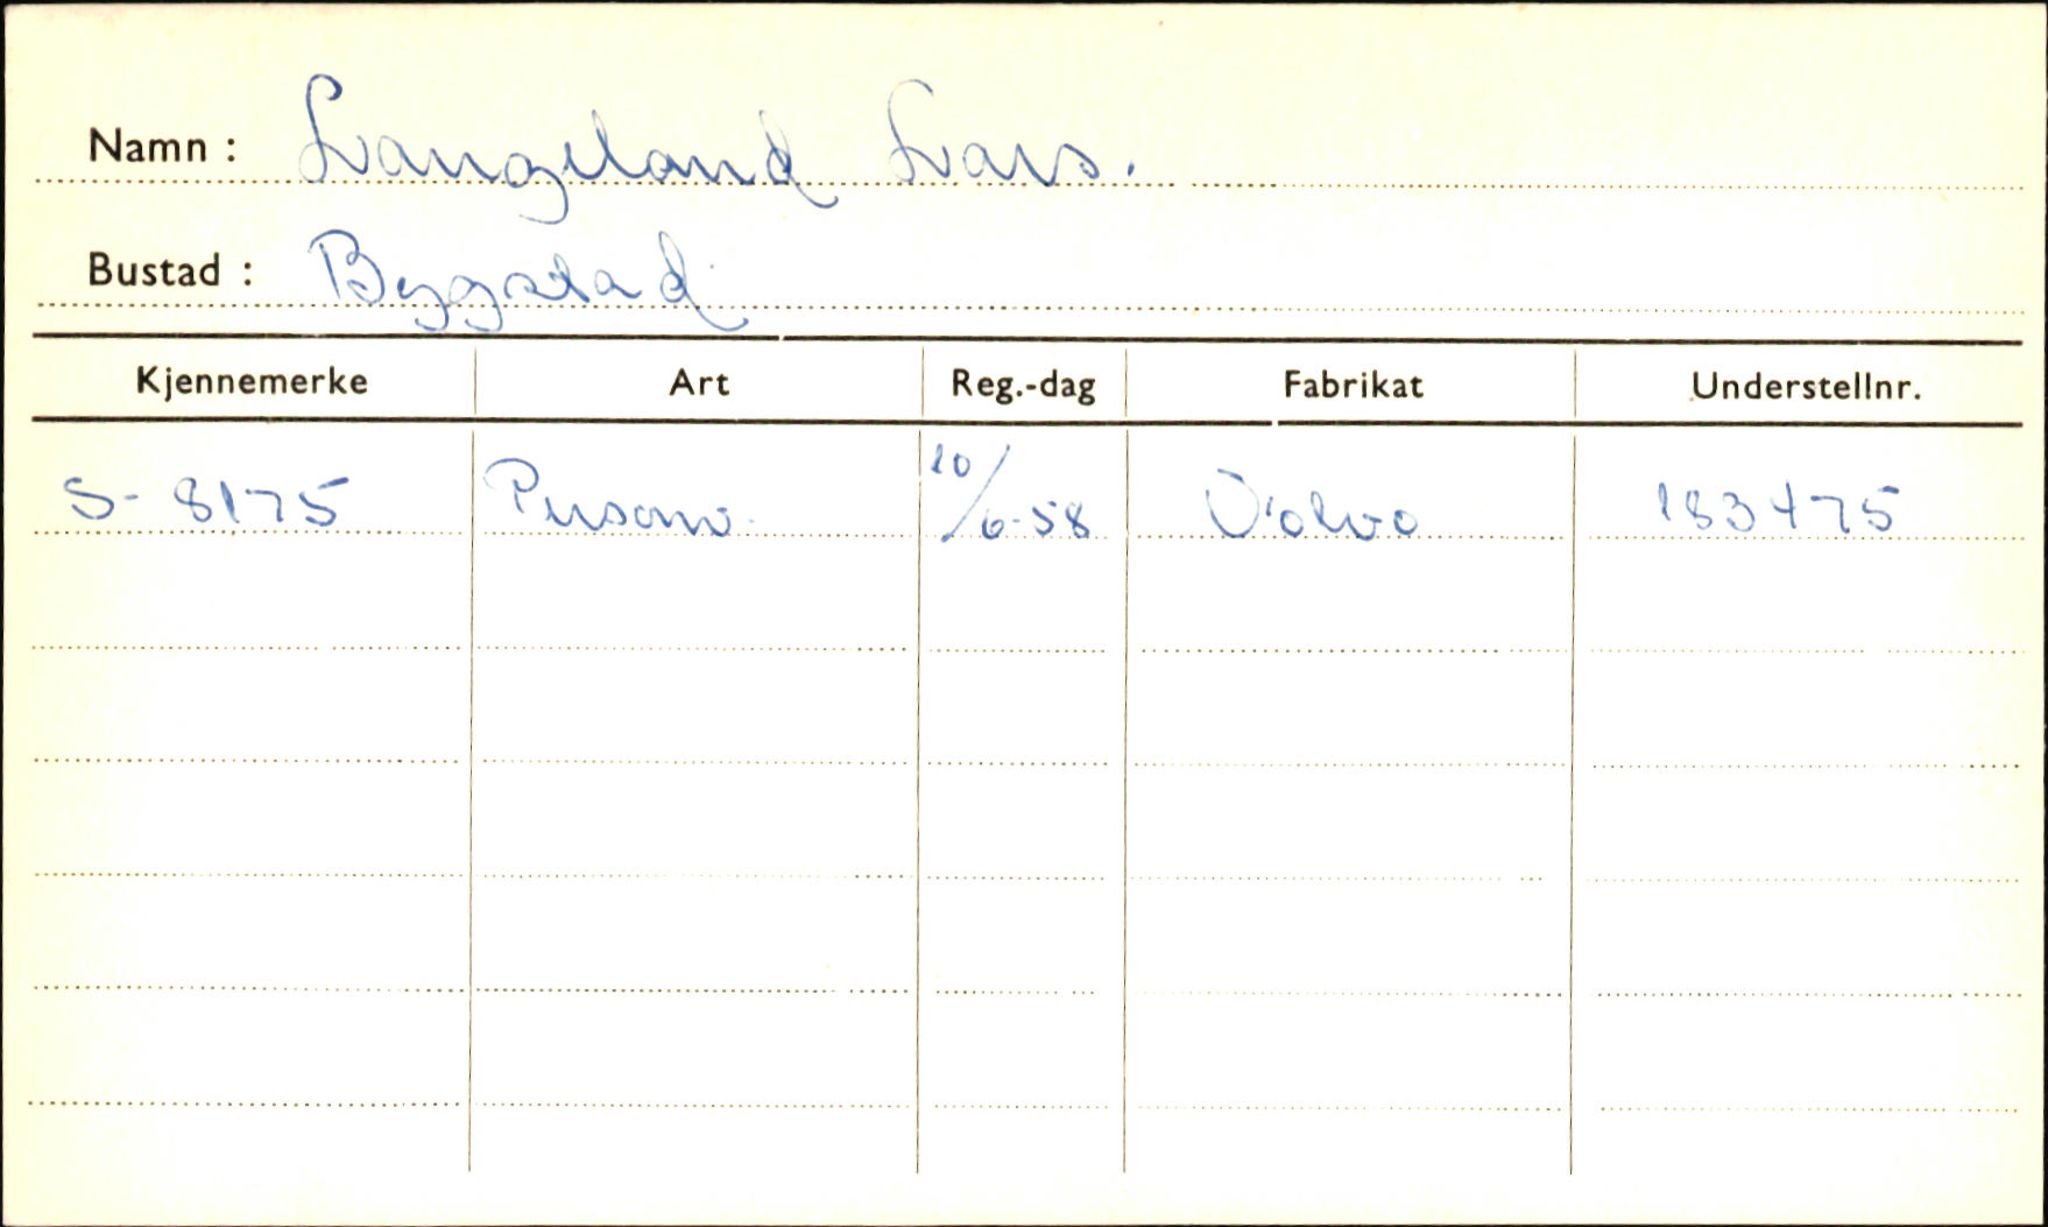 Namn : Langeland Lars.
Bustad : Bygstad
Kjennemerke Art Reg.-dag Fabrikat Understellnr.
S- 8175 Personv. 10/6-58 Volvo 183475